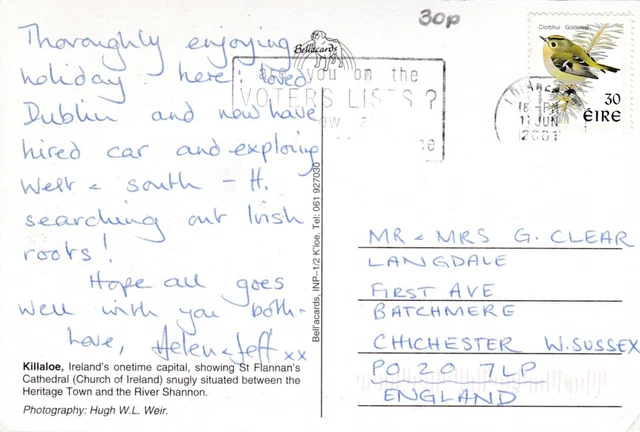 30p
Thoroughly enjoying
holiday here: loved
Dublin and now have
hired car and exploring
West & south – H.
searching out Irish
roots!
Hope all goes
well with you both.
Love, Helen & Jeff xx
Killaloe, Ireland's onetime capital, showing St Flannan's
Cathedral (Church of Ireland) snugly situated between the
Heritage Town and the River Shannon.
Photography: Hugh W.L. Weir.
Bell'acards
Bell'acards, INP–1/2 K'loe. Tel: 061 927030
you on the
VOTERS LISTS?
18 -PM
11 JUN
2001
Goldcrest
30
ÉIRE
MR & MRS G. CLEAR
LANGDALE
FIRST AVE
BATCHMERE
CHICHESTER W. SUSSEX
PO 20 7LP
ENGLAND